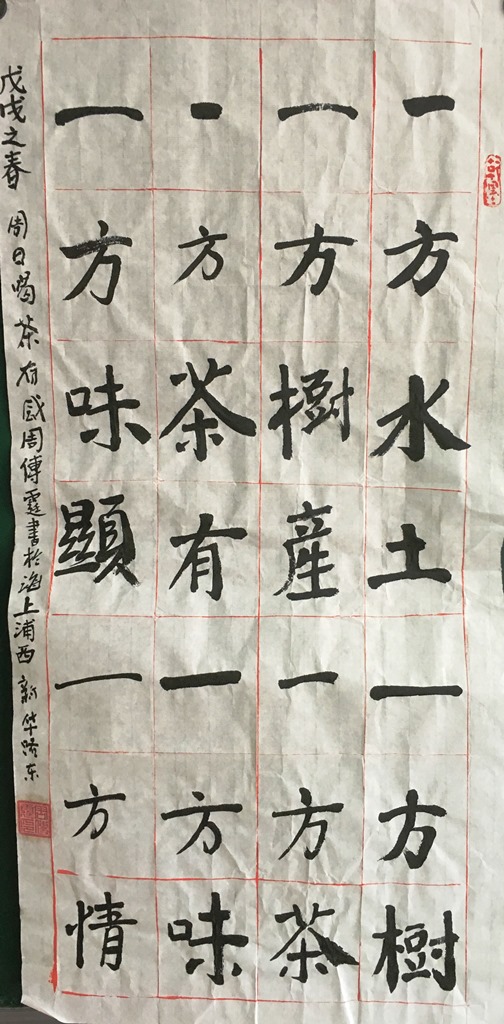 一方水土一方樹
一方樹産一方茶
一方茶有一方味
一方味顯一方情
戊戌之春 周日喝茶有感周傳霆書於海上浦西新华路东